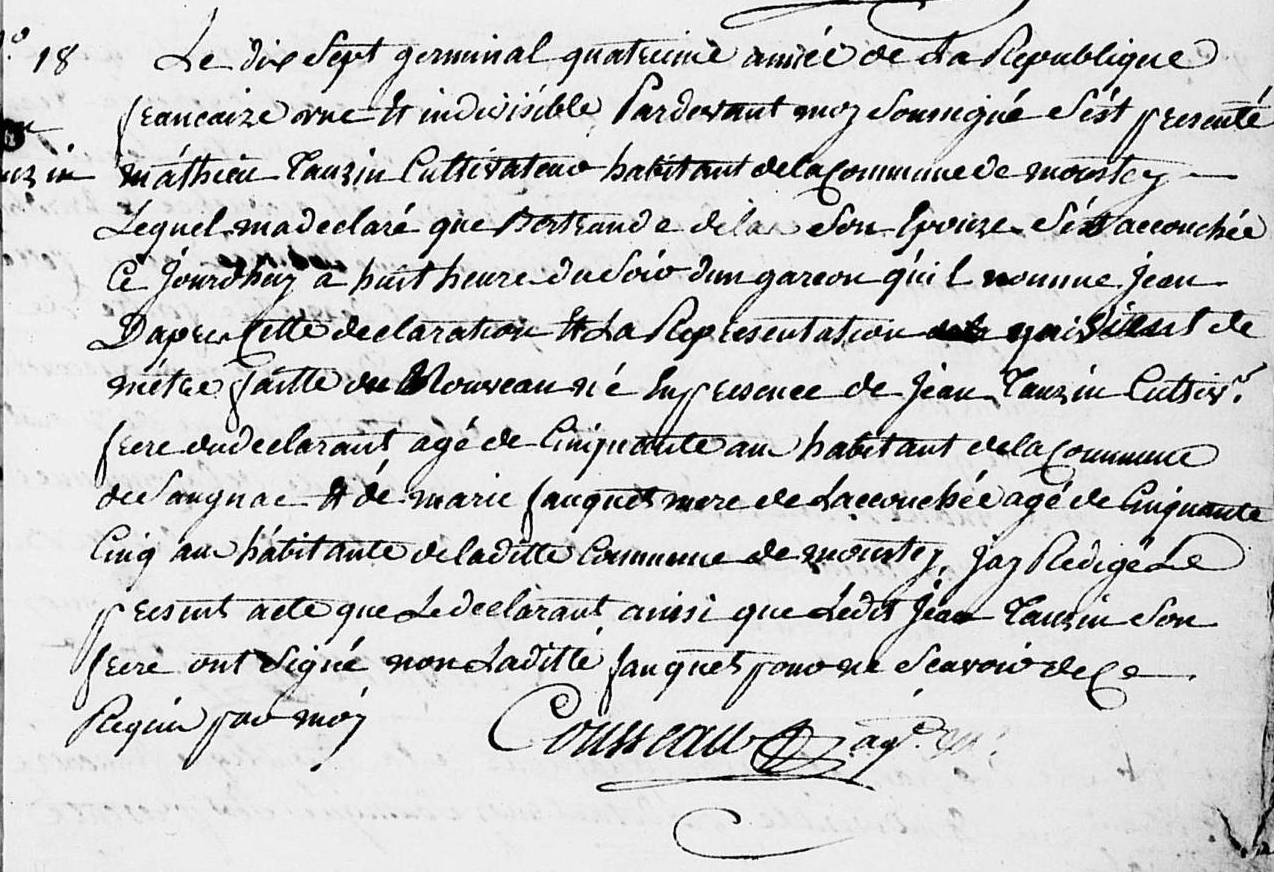 18 Le dix Sept germinal quatrieme année de La Republique
francaize une Et indivisible Pardevant moy Soussigné S'ést presenté
máthieu Tauzin Cultivateur habitant dela Commune de moustey
Lequel ma declaré que Bertrande dela Son Epouze S'ést accouchée
Ce Jourdhuy a huit heure du Soir dun garcon qu'il nomme Jean
Daprer Cette declaration Et La Representation de
métre faitte du Nouveau né En presence de Jean Tauzin Cultivr.
frere du declarant agé de Cinquante an habitant dela Commune
de Saugnac Et dé marie fauquet mere de Laccouchée agé de Cinquante
Cinq an hábitante deladitte Commune de moustey, Jay Redigé Le
present acte que Le declarant ainsi que Ledit Jean Tauzin Son
frere ont Signé non Laditte fauquet pour ne Scavoir de Ce
Requis par moy Cousseau agt.